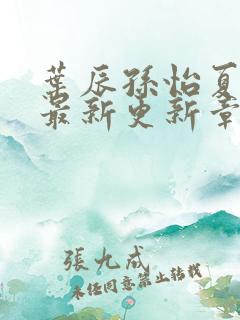 葉辰孫怡夏
最新更新章
張九成
未經同意禁止轉載